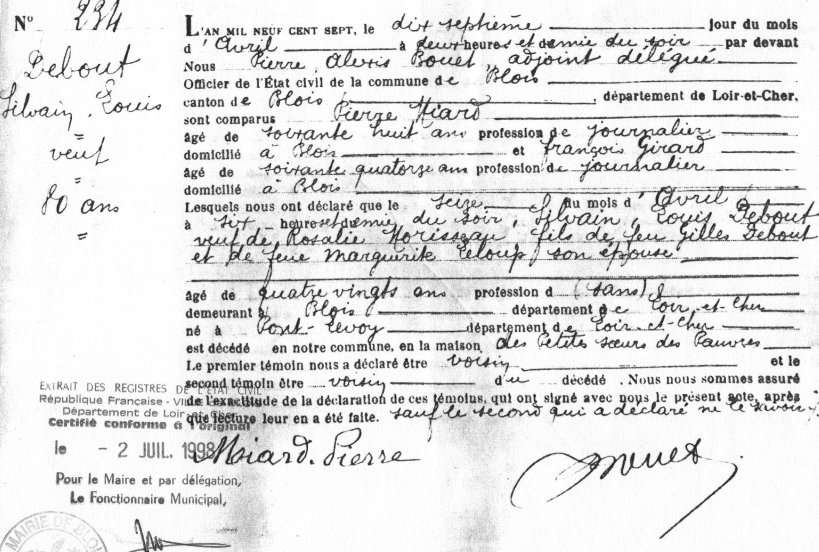 N° 234
Debout
Silvain, Louis
=
veuf
=
80 ans
=
L'AN MIL NEUF CENT SEPT, le dix septième jour du mois
d'Avril à deux heures et demie du soir par devant
Nous Pierre, Alexis Bouet, adjoint délégué
Officier de l'État civil de la commune de Blois
canton de Blois, département de Loir-et-Cher.
sont comparus Pierre Miard
âgé de soixante huit ans profession de journalier
domicilié à Blois et François Girard
âgé de soixante quatorze ans profession de journalier
domicilié à Blois
Lesquels nous ont déclaré que le seize du mois d'Avril
à six heures et demie du soir, Silvain, Louis Debout
veuf de Rosalie Morisseau, fils de feu Gilles Debout
et de feue Marguerite Leloup, son épouse
âgé de quatre vingts ans profession d (sans)
demeurant à Blois département de Loir-et-Cher
né à Pont-Levoy département de Loir-et-Cher
est décédé en notre commune, en la maison des Petites sœurs des Pauvres
Le premier témoin nous a déclaré être voisin et le
second témoin être voisin d'u décédé. Nous nous sommes assuré
de l'exactitude de la déclaration de ces témoins, qui ont signé avec nous le présent acte, après
que lecture leur en a été faite. sauf le second qui a déclaré ne le savoir
Miard. Pierre
Bouet
EXTRAIT DES REGISTRES DE L'ÉTAT CIVIL
République Française - VILLE
Département de Loir-et-Cher
Certifié conforme à l'original
le - 2 JUIL. 1998
Pour le Maire et par délégation,
Le Fonctionnaire Municipal,
MAIRIE DE BLOIS